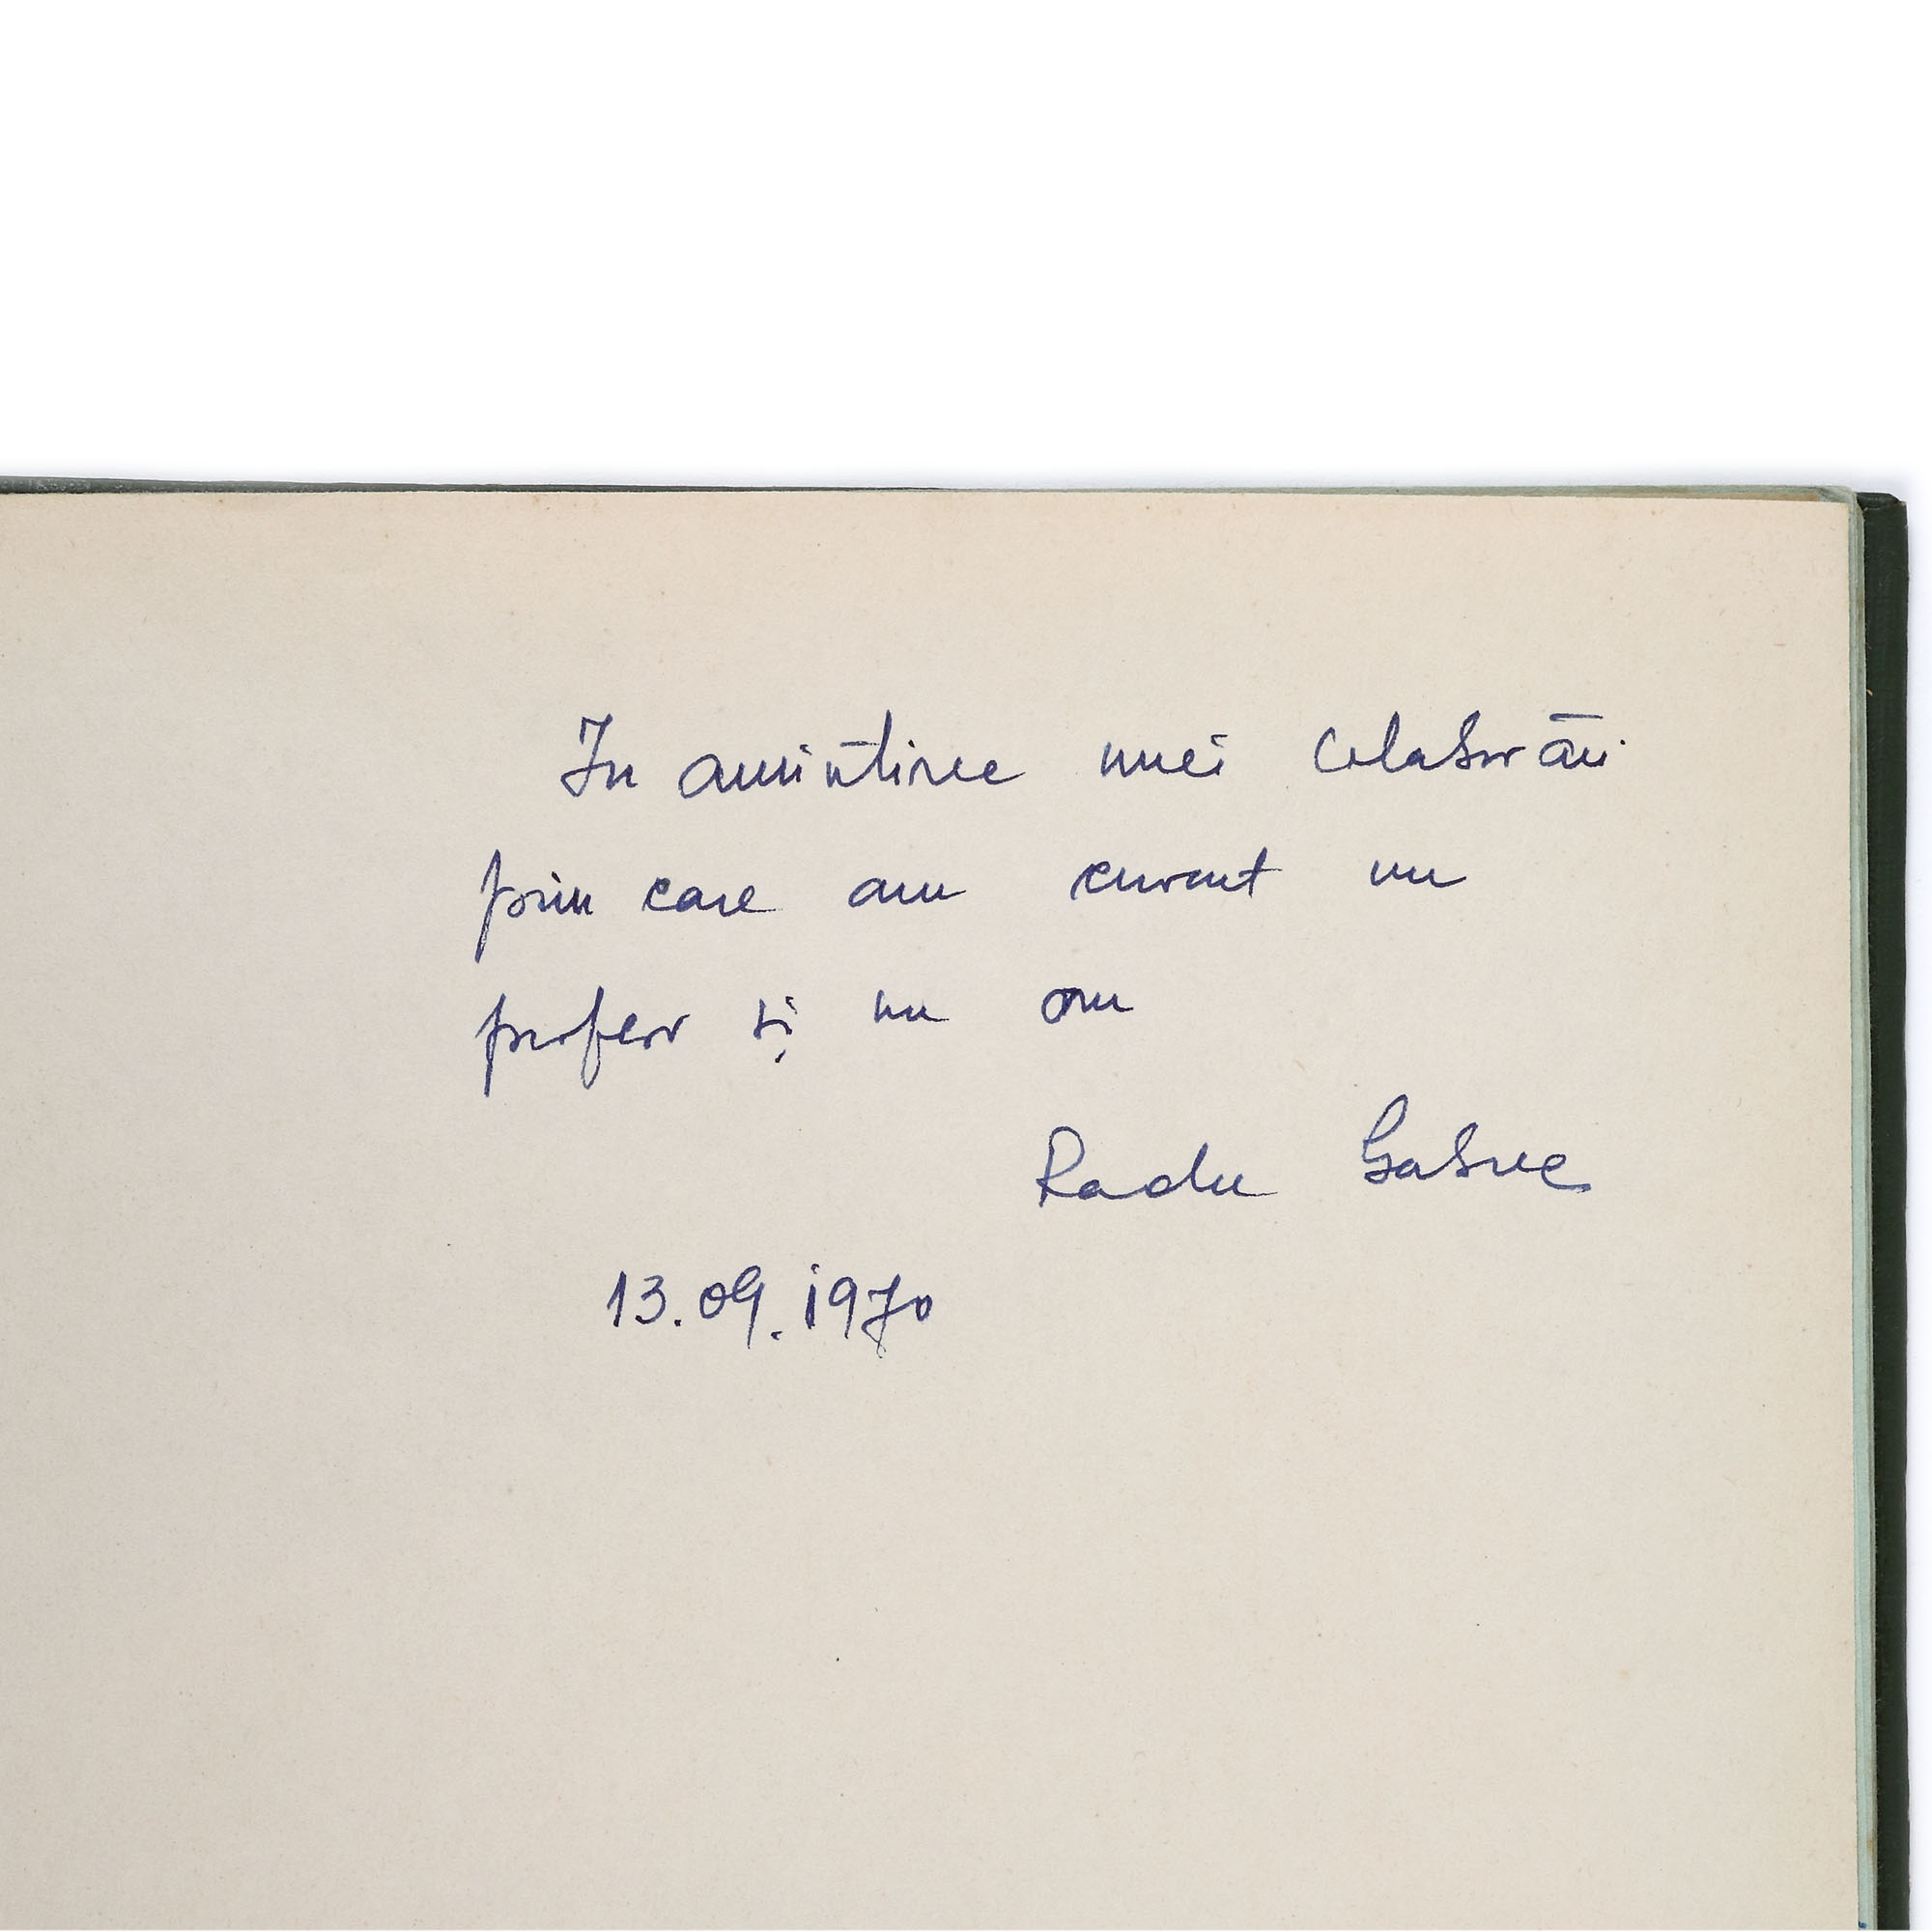 In amintirea unei colaborări
prin care am cunoscut un
profesor și un om
Radu Gabrea
13.09.1970